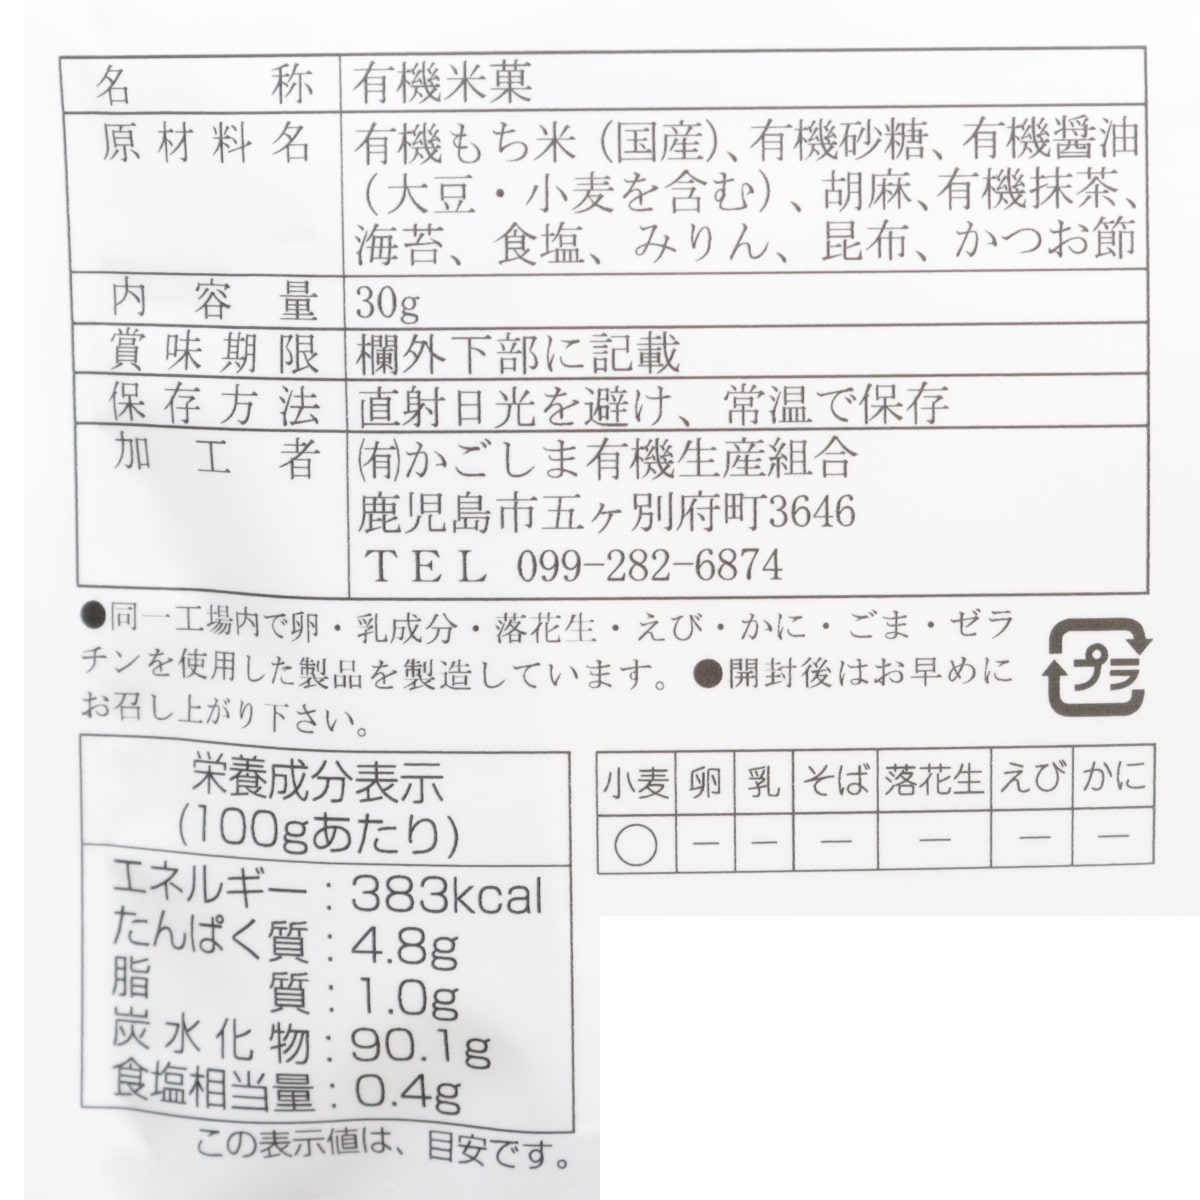 名称 有機米菓
原材料名 有機もち米（国産）、有機砂糖、有機醤油
（大豆・小麦を含む）、胡麻、有機抹茶、
海苔、食塩、みりん、昆布、かつお節
内容量 30g
賞味期限 欄外下部に記載
保存方法 直射日光を避け、常温で保存
加工者 ㈲かごしま有機生産組合
鹿児島市五ヶ別府町3646
ＴＥＬ 099-282-6874
●同一工場内で卵・乳成分・落花生・えび・かに・ごま・ゼラ
チンを使用した製品を製造しています。●開封後はお早めに
お召し上がり下さい。
プラ
栄養成分表示
(100gあたり)
エネルギー：383kcal
たんぱく質：4.8g
脂質：1.0g
炭水化物：90.1g
食塩相当量：0.4g
この表示値は、目安です。
小麦 卵 乳 そば 落花生 えび かに
○ － － － － － －